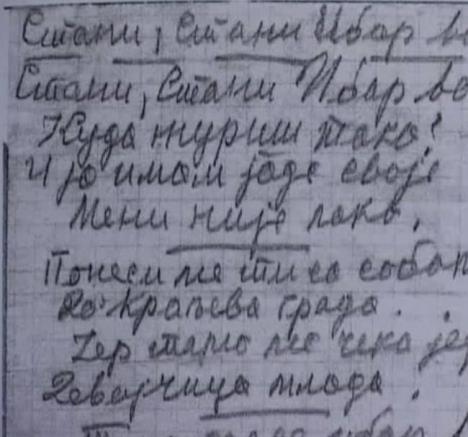 Стани, Стани Ибар во
Стани, Стани Ибар во
Куда журиш тако?
И ја имам јаде своје
Мени није лако.
Понеси ме ти са собом
До Краљева града.
Јер тамо ме чека је
Девојчица млада.